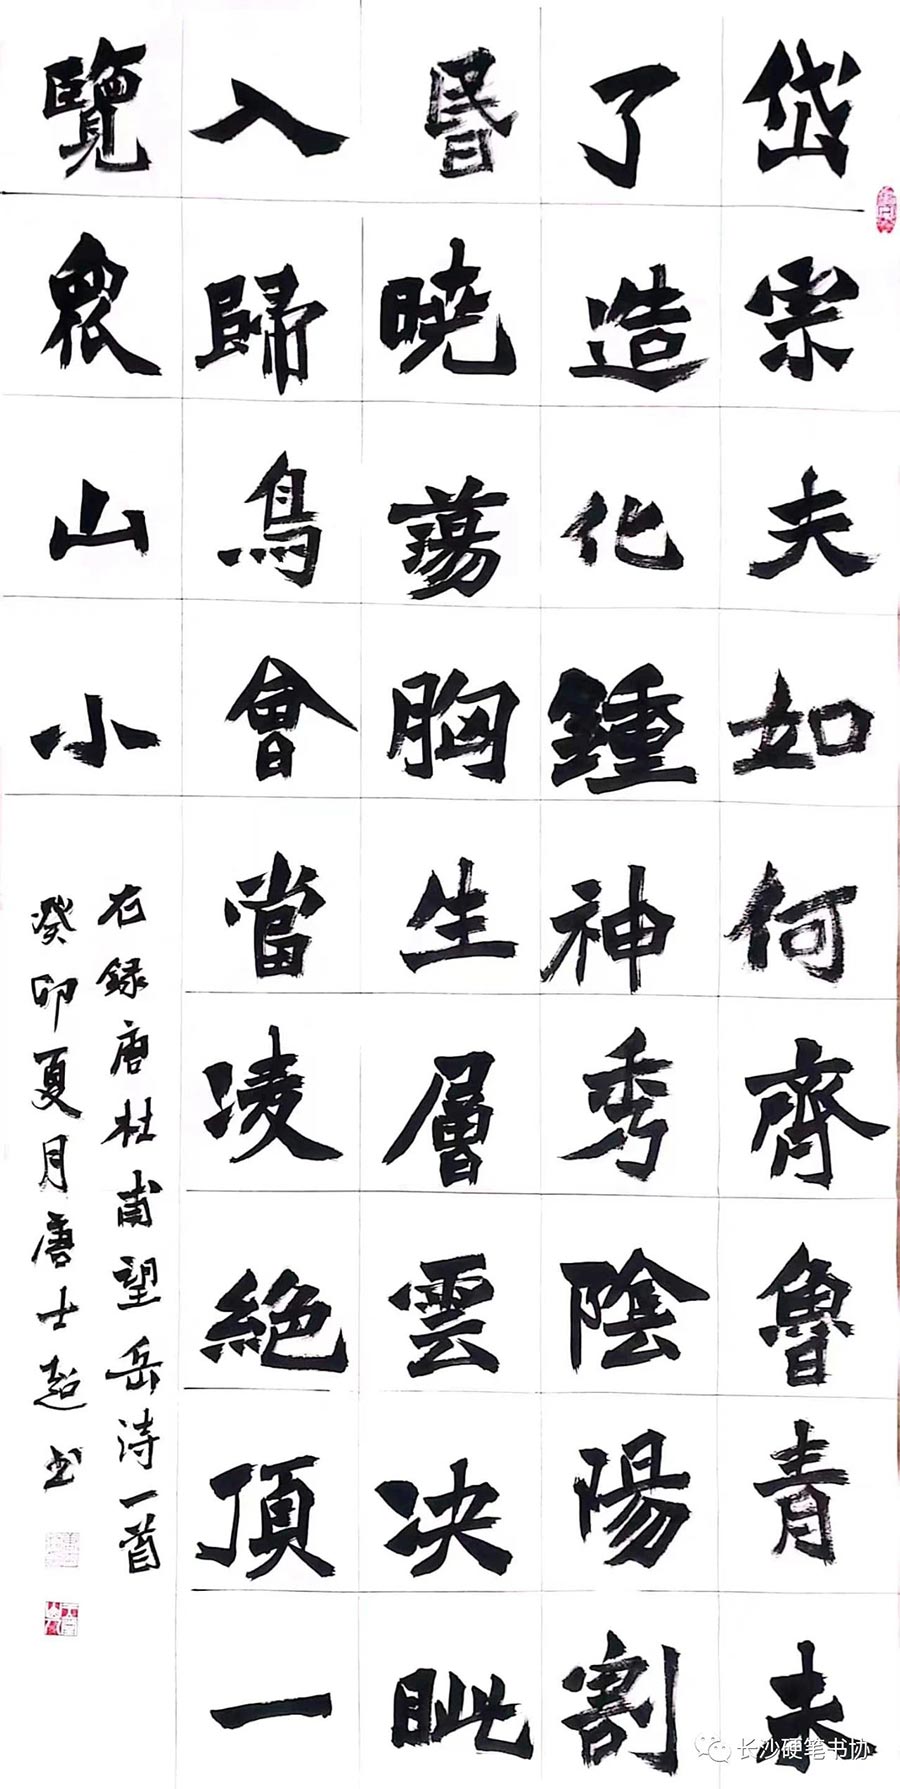 岱宗夫如何齊魯青未
了造化鍾神秀陰陽割
昬曉蕩胸生層雲決眦
入歸鳥會當凌絕頂一
覽眾山小
右録唐杜甫望岳诗一首
癸卯夏月唐士超书
长沙硬笔书协